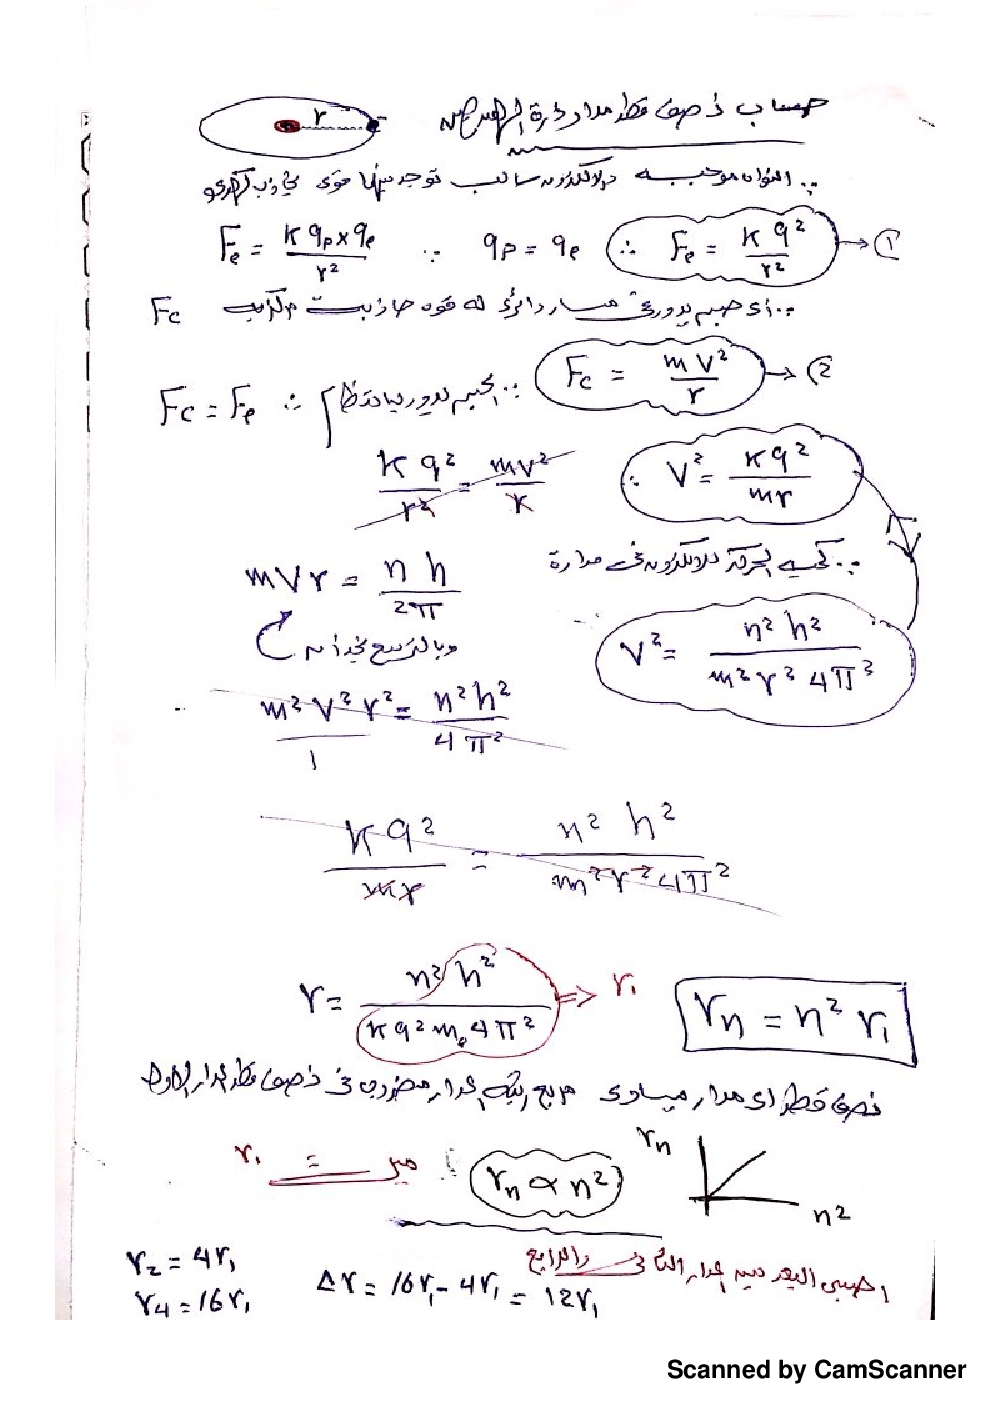 r
حساب نصف قطر مدار ذرة الهيدروجين
∵ النواه موجبه والالكترون سالب توجد بينهما قوى تجاذب كهربي
Fe = K qp×qe / r² ∵ qp = qe ∴ Fe = K q² / r² → ①
∵ أى جسم يدور فى مسار دائرى له قوه جاذبيت مركزيه Fc
Fc = m v² / r → ②
∵ الجسم يدور بانتظام ∴ Fc = Fe
K q² / r² = m v² / r ∴ V² = K q² / m r
∵ كميه الحركة للالكترون فى مدارة
m V r = n h / 2π
وبالتربيع نجد ان
V² = n² h² / m² r² 4π²
m² V² r² / 1 = n² h² / 4π²
K q² / m r = n² h² / m² r² 4π²
r = n² h² / K q² me 4π² ⇒ r₁
rn = n² r₁
نصف قطر اى مدار يساوى مربع رتبه المدار مضروب فى نصف قطر المدار الاول
r₁ = ميل
rn ∝ n²
rn
n²
احسبى البعد بين المدار الثانى والرابع
r₂ = 4r₁
r₄ = 16r₁
Δr = 16r₁ - 4r₁ = 12r₁
Scanned by CamScanner